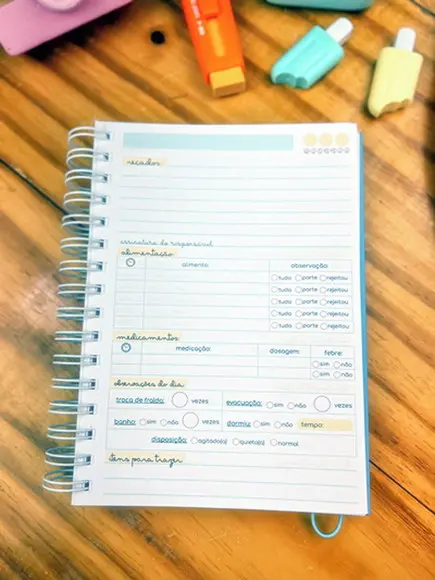 recados
assinatura do responsável
alimentação
alimento: observação:
tudo parte rejeitou
tudo parte rejeitou
tudo parte rejeitou
tudo parte rejeitou
tudo parte rejeitou
medicamentos
medicação: dosagem: febre:
sim não
sim não
observações do dia
troca de fralda: vezes evacuação: sim não vezes
banho: sim não vezes dormiu: sim não tempo:
disposição: agitado(a) quieto(a) normal
itens para trazer